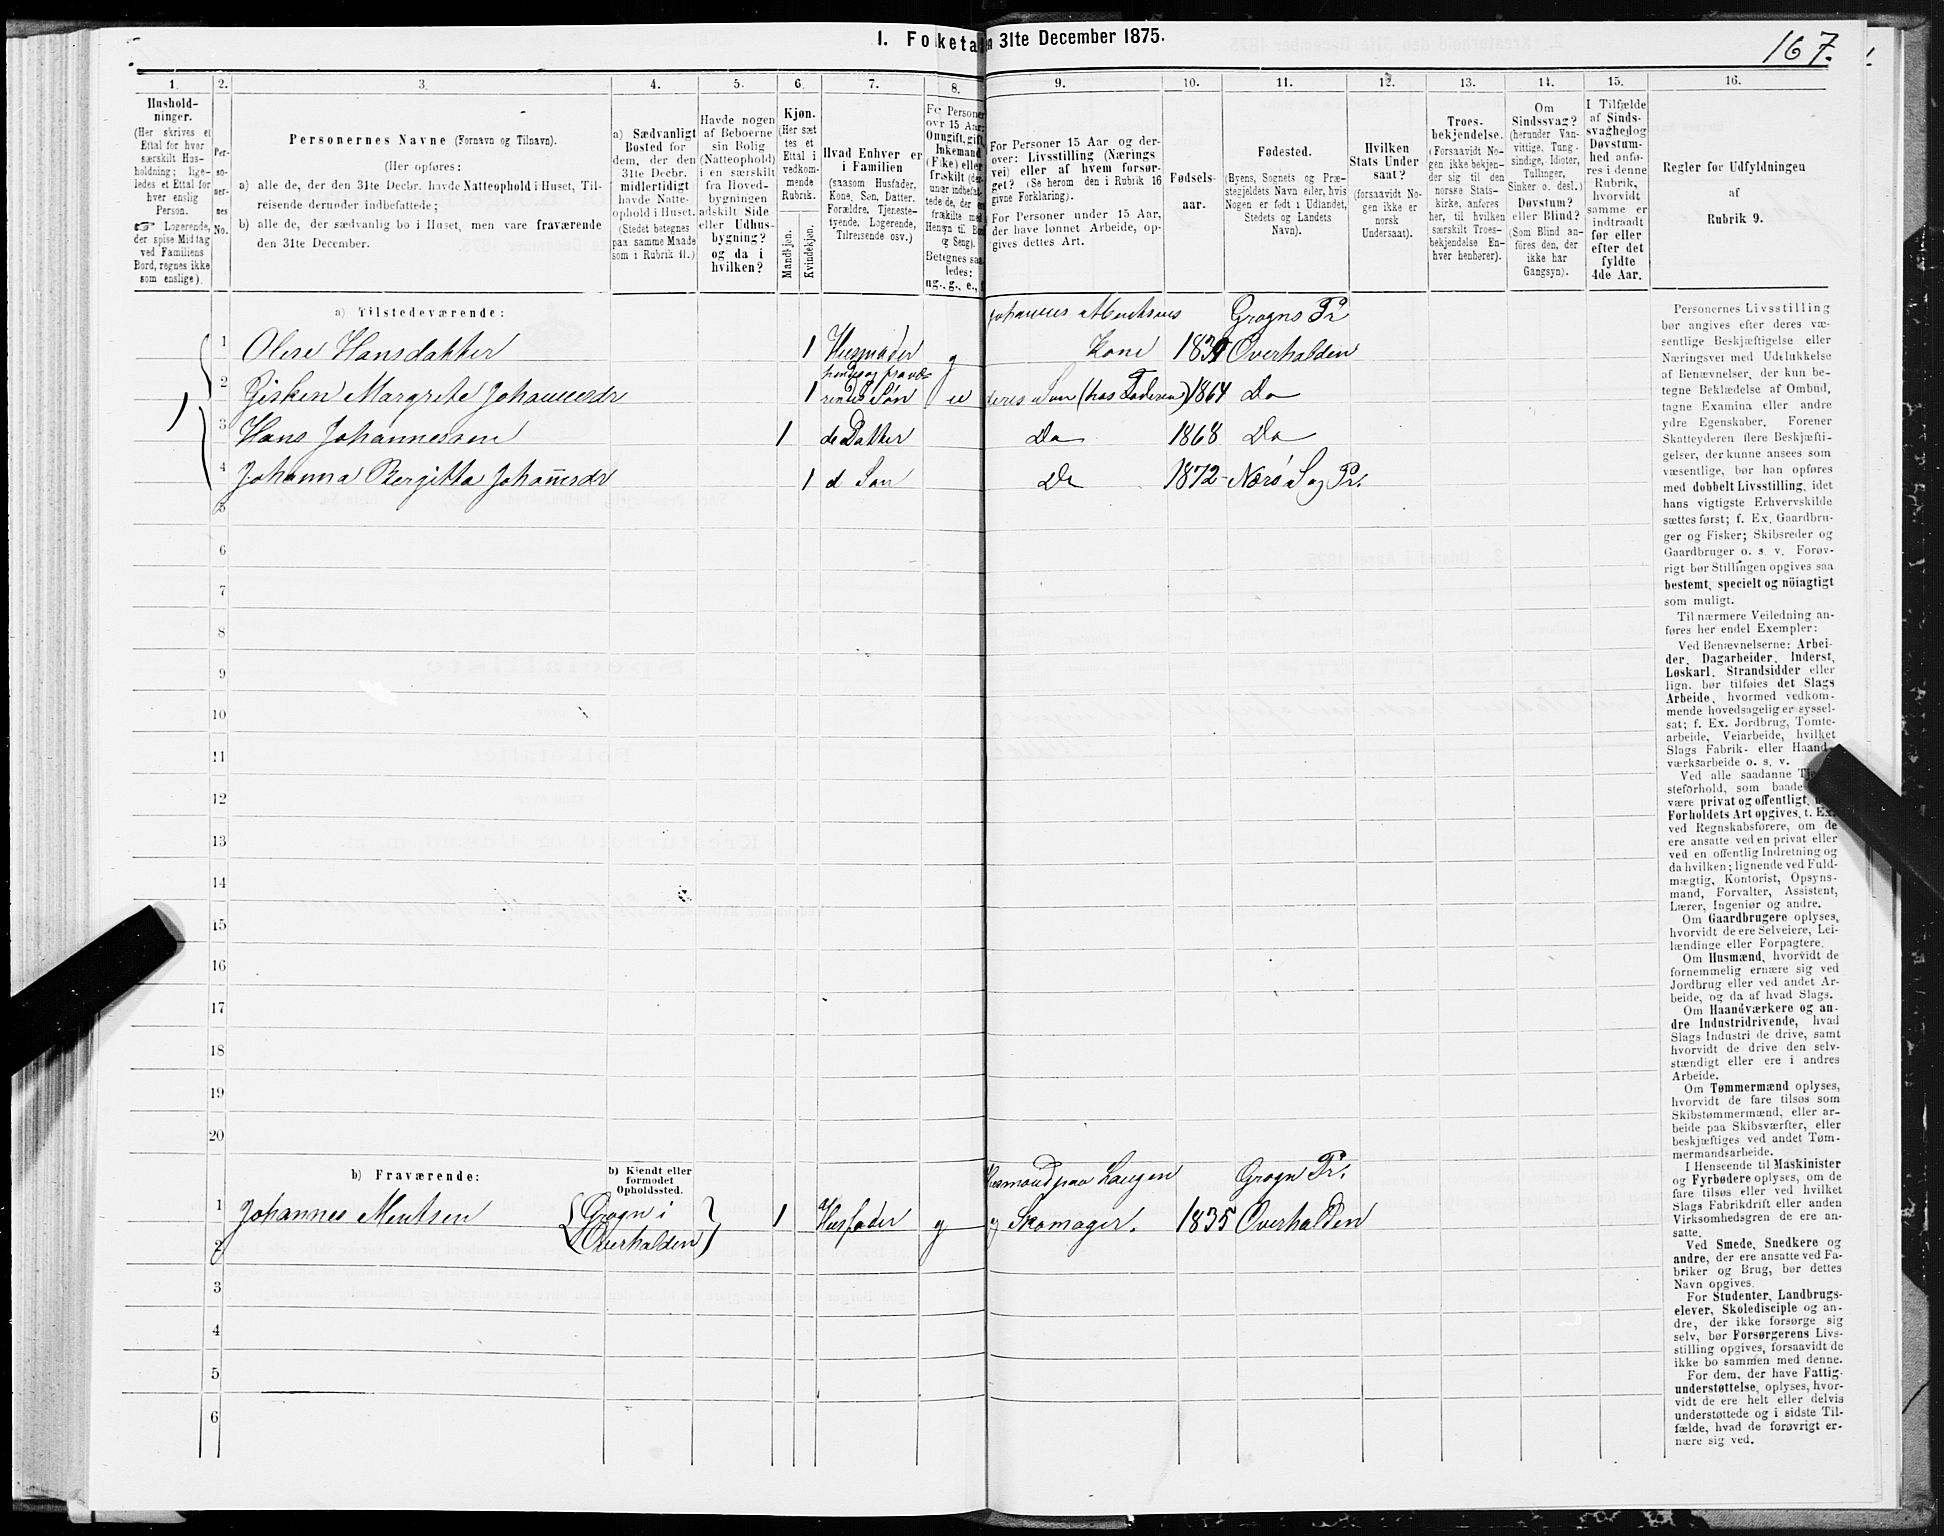 I. Folketal den 31te December 1875.
167.
1. 2. 3. 4. 5. 6. 7. 8. 9. 10. 11. 12. 13. 14. 15. 16.
Hushold-
ninger.
(Her skrives et
Ettal for hver
særskilt Hus-
holdning; lige-
ledes et Ettal for
hver enslig
Person.
☞ Logerende,
der spise Middag
ved Familiens
Bord, regnes ikke
som enslige).
Per-
so-
ner-
nes
No.
Personernes Navne (Fornavn og Tilnavn).
(Her opføres:
a) alle de, der den 31te Decbr. havde Natteophold i Huset, Til-
reisende derunder indbefattede;
b) alle de, der sædvanlig bo i Huset, men vare fraværende
den 31te December.
a) Sædvanligt
Bosted for
dem, der den
31te Decbr.
midlertidigt
havde Natte-
ophold i Huset.
(Stedet betegnes
paa samme Maade
som i Rubrik 11.)
Havde nogen
af Beboerne
sin Bolig
(Natteophold)
i en særskilt
fra Hoved-
bygningen
adskilt Side-
eller Udhus-
bygning?
og da i
hvilken?
Kjøn.
(Her sæt-
tes et
Ettal i
vedkom-
mende
Rubrik.
Mandkjøn.
Kvindekjøn.
Hvad Enhver er
i Familien
(saasom Husfader,
Kone, Søn, Datter,
Forældre, Tjeneste-
tyende, Logerende,
Tilreisende osv.)
ng., g., e., f
For Personer 15 Aar og der-
over: Livsstilling (Nærings-
vei) eller af hvem forsør-
get? (Se herom den i Rubrik 16
givne Forklaring).
For Personer under 15 Aar,
der have lønnet Arbeide, op-
gives dettes Art.
Fødsels-
aar.
Fødested.
(Byens, Sognets og Præ-
stegjeldets Navn eller, hvis
Nogen er født i Udlandet,
Stedets og Landets
Navn).
Hvilken
Stats Under-
saat?
(forsaavidt No-
gen ikke er
norsk
Undersaat).
Troes-
bekjendelse.
(Forsaavidt No-
gen ikke bekjen-
der sig til den
norske Stats-
kirke, anføres
her, til hvilken
særskilt Troes-
bekjendelse En-
hver henhører).
Om
Sindssvag?
(herunder Van-
vittige, Tung-
sindige, Idioter,
Tullinger,
Sinker o. desl.)
Døvstum?
eller Blind?
(Som Blind an-
føres den, der
ikke har
Gangsyn).
I Tilfælde
af Sinds-
svaghed og
Døvstum-
hed anfø-
res i denne
Rubrik,
hvorvidt
samme er
indtraadt
før eller
efter det
fyldte
4de Aar.
Regler for Udfyldningen
af
Rubrik 9.
a) Tilstedeværende:
Johannes Mentsens Grogns Pr
1 Olise Hansdatter 1 Husmoder g Kone 1839 Overhalden
2 Gisken Margrete Johannesdr 1 Søn 1864 Do
3 Hans Johannessen 1 de Datter Do 1868 Do
4 Johanna Bergitta Johannesdr 1 d Søn Do 1872 Nærø S og Pr.
5
6
7
8
9
10
11
12
13
14
15
16
17
18
19
20
b) Fraværende:
b) Kjendt eller
formodet
Opholdssted.
Husmand paa Laugen Grogn Pr.
1 Johannes Mentsen Grogn i 1 Husfader g og Skomager. 1835 Overhalden
2 Overhalden
3
4
5
6
Personernes Livsstilling
bør angives efter deres væ-
sentlige Beskjæftigelse eller
Næringsvei med Udelukkelse
af Benævnelser, der kun be-
tegne Beklædelse af Ombud,
tagne Examina eller andre
ydre Egenskaber. Forener
Skatteyderen flere Beskjæfti-
gelser, der kunne ansees som
væsentlige, bør han opføres
med dobbelt Livsstilling, idet
hans vigtigste Erhvervskilde
sættes først; f. Ex. Gaardbru-
ger og Fisker; Skibsreder og
Gaardbruger o. s. v. Forøv-
rigt bør Stillingen opgives saa
bestemt, specielt og nöiagtigt
som muligt.
Til nærmere Veiledning an-
føres her endel Exempler:
Ved Benævnelserne: Arbei-
der, Dagarbeider, Inderst,
Løskarl, Strandsidder eller
lign. bør tilføies det Slags
Arbeide, hvormed vedkom-
mende hovedsagelig er syssel-
sat; f. Ex. Jordbrug, Tomte-
arbeide, Veiarbeide, hvilket
Slags Fabrik- eller Haand-
værksarbeide o. s. v.
Ved alle saadanne
steforhold, som baade
være privat og offentligt,
Forholdets Art opgives, t. Ex.
ved Regnskabsførere, om de
ere ansatte ved en privat eller
ved en offentlig Indretning og
da hvilken; lignende ved Fuld-
mægtig, Kontorist, Opsyns-
mand, Forvalter, Assistent,
Lærer, Ingeniør og andre.
Om Gaardbrugere oplyses,
hvorvidt de ere Selveiere, Lei-
lændinge eller Forpagtere.
Om Husmænd, hvorvidt de
fornemmelig ernære sig ved
Jordbrug eller ved andet Ar-
beide, og da af hvad Slags.
Om Haandværkere og an-
dre Industridrivende, hvad
Slags Industri de drive, samt
hvorvidt de drive den selv-
stændigt eller ere i andres
Arbeide.
Om Tømmermænd oplyses,
hvorvidt de fare tilsøs som
Skibstømmermænd, eller ar-
beide paa Skibsværfter, eller
beskjæftiges ved andet Tøm-
mermandsarbeide.
I Henseende til Maskinister
og Fyrbødere oplyses, om de
fare tilsøs eller ved hvilket
Slags Fabrikdrift eller anden
Virksomhedsgren de ere an-
satte.
Ved Smede, Snedkere og
andre, der ere ansatte ved Fa-
briker og Brug, bør dettes
Navn opgives.
For Studenter, Landbrugs-
elever, Skoledisciple og an-
dre, der ikke forsørge sig
selv, bør Forsørgerens Livs-
stilling opgives, forsaavidt de
ikke bo sammen med denne.
For dem, der have Fattig-
understøttelse, oplyses, hvor-
vidt de ere helt eller delvis
understøttede og i sidste Til-
fælde, hvad de forøvrigt er-
nære sig ved.